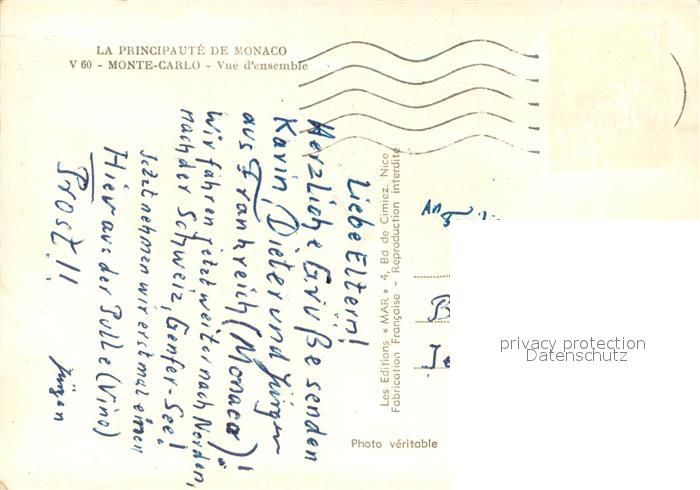 LA PRINCIPAUTÉ DE MONACO
V 60 - MONTE-CARLO - Vue d'ensemble
Liebe Eltern!
Herzliche Grüße senden
Karin, Dieter und Jürgen
aus Frankreich (Monaco)!
Wir fahren jetzt weiter nach Norden,
nach der Schweiz, Genfer-See!
Jetzt nehmen wir erst mal einen
Hier aus der Pulle (Vino)
Prost!!
Jürgen
Les Editions « MAR » 4, Bd de Cimiez, Nice
Fabrication Française - Reproduction interdite
Photo véritable
An
privacy protection
Datenschutz